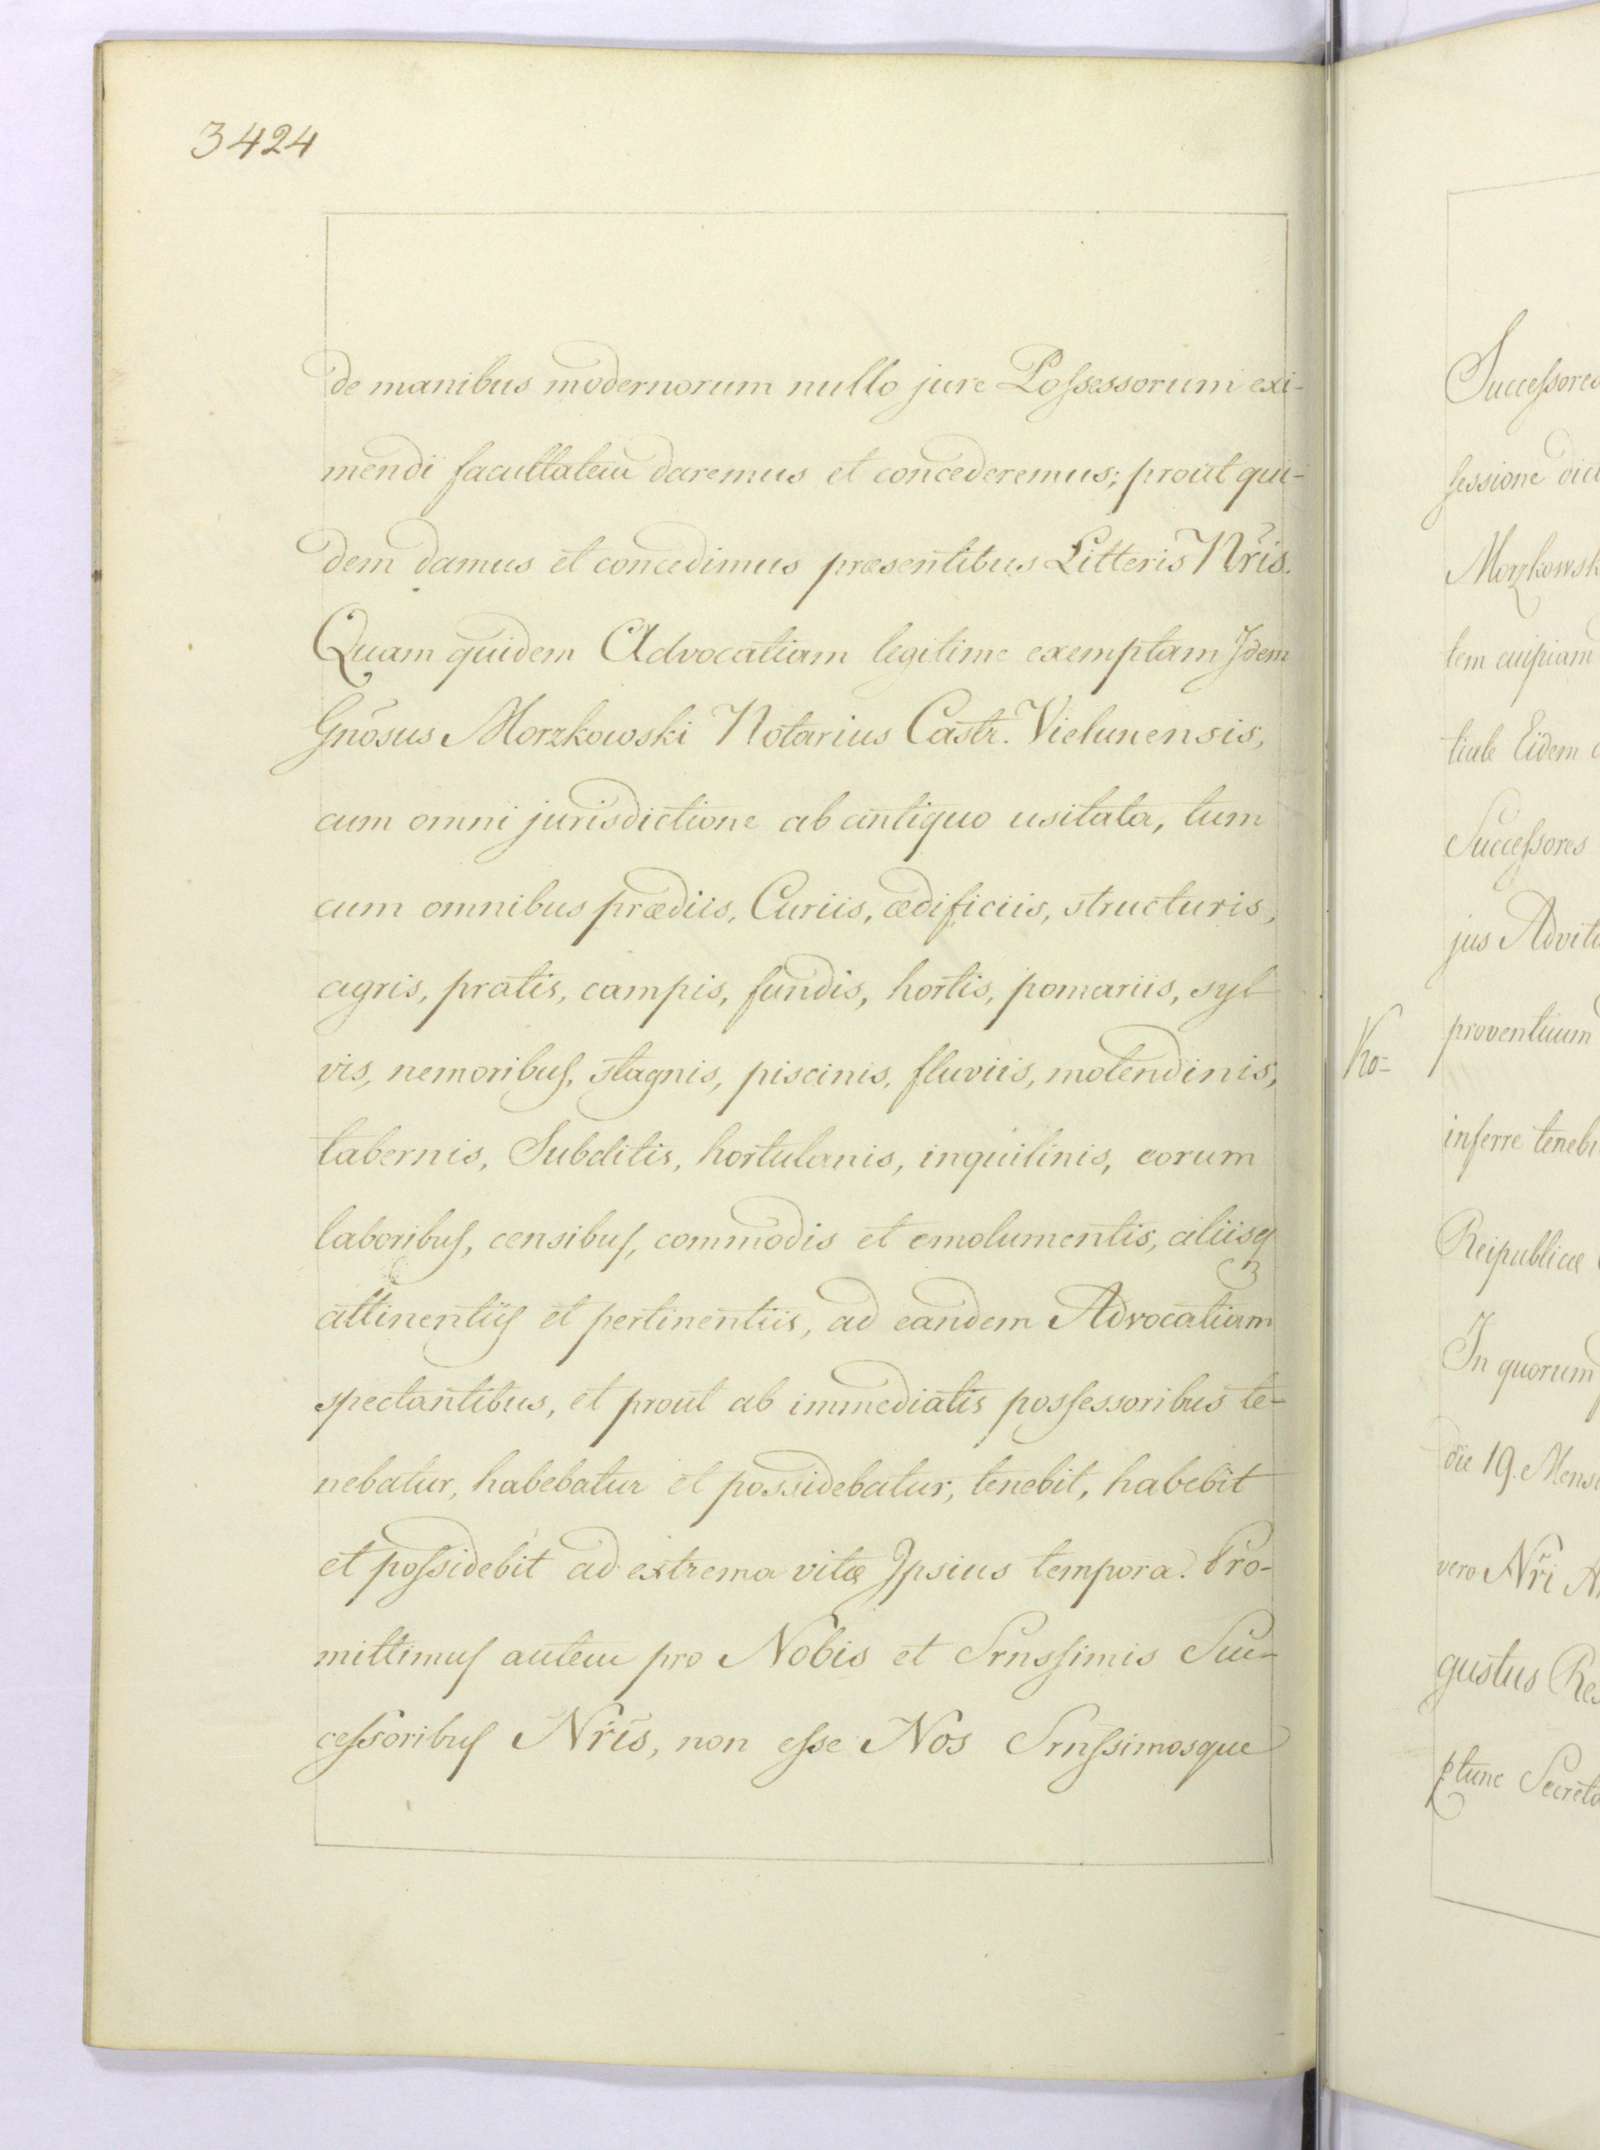 3424
de manibus modernorum nullo jure Possessorum exi-
mendi facultatem daremus et concederemus; prout qui-
dem damus et concedimus præsentibus Litteris Nr̃is.
Quam quidem Advocatiam legitime exemptam Idem
Gnõsus Morzkowski Notarius Castr. Vielunensis,
cum omni jurisdictione ab antiquo usitata, tum
cum omnibus prædiis, Curiis, ædificiis, structuris,
agris, pratis, campis, fundis, hortis, pomariis, syl
vis, nemoribus, stagnis, piscinis, fluviis, molendinis,
tabernis, Subditis, hortulanis, inquilinis, eorum
laboribus, censibus, commodis et emolumentis, aliisq
attinentiis et pertinentiis, ad eandem Advocatiam
spectantibus, et prout ab immediatis possessoribus te-
nebatur, habebatur et possidebatur, tenebit, habebit
et possidebit ad extrema vitæ Ipsius tempora. Pro-
mittimus autem pro Nobis et Srnssimis Suc-
cessoribus Nr̃is, non esse Nos Srnssimosque
Successores
sessione
Morzkowsk
tem cuipiam
tiale Eidem
Successores
jus Advita
proventuum
Ko-
inferre tenebi
Reipublicæ
In quorum
die 19. Mens
vero Nr̃i
gustus Re
ptunc Secreta